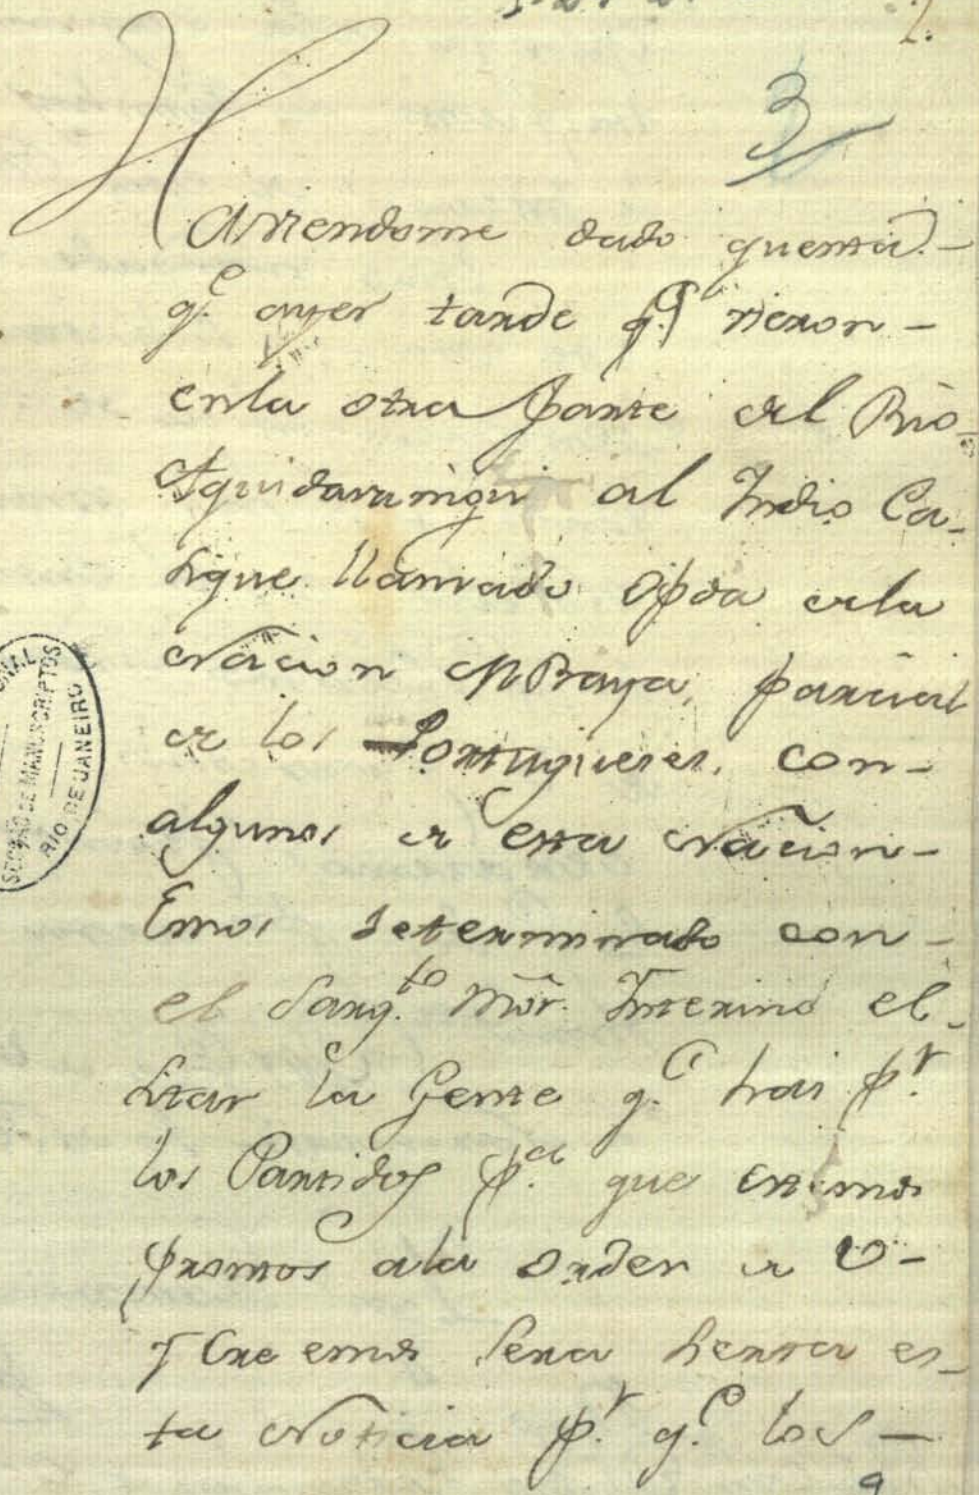 3
Haviendome dado quenta -
q.e ayer tarde q.e vieron -
enla otra parte del Rio -
Aquidavanigui al Indio Ca-
sique llamado Opda dela
Nacion MBaya, parcial
de los Portugueses, con -
algunos de esta Nacion -
Emos determinado con -
el Sarg.to Mõr. Interino el -
sitar la Gente q.e hai p.r
los Partidos p.a que estemos
promtos ala orden de V -
y Cre emos sera serta es-
ta Noticia p.r q.e los -
SECÇÃO DE MANUSCRIPTOS
RIO DE JANEIRO